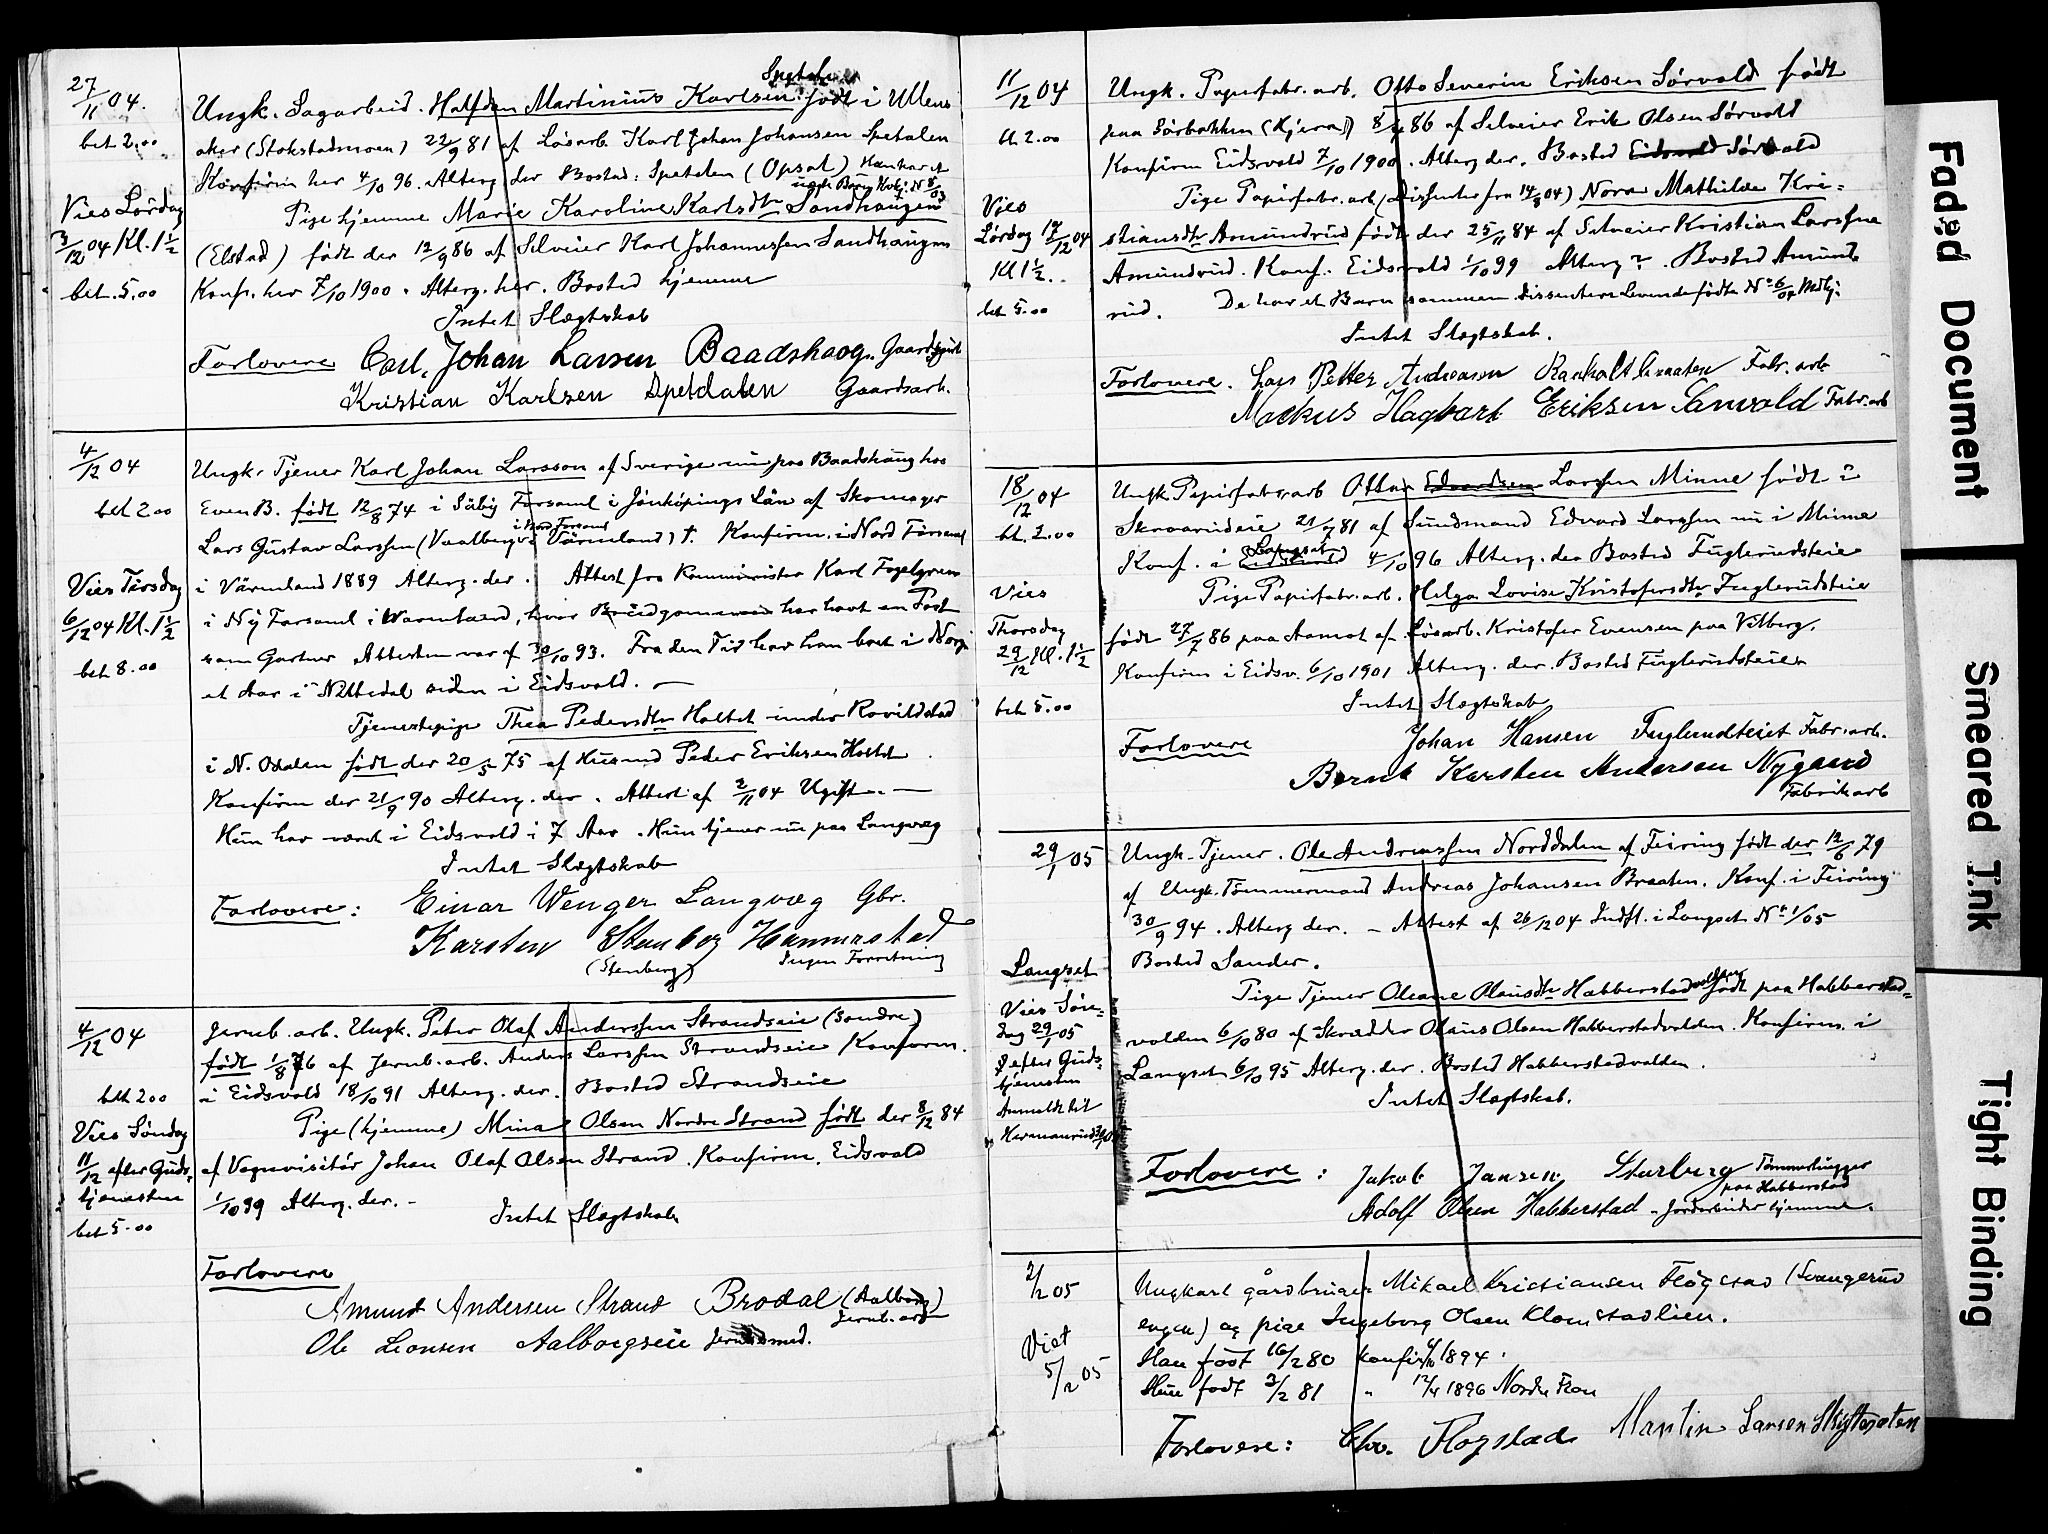 27/11 04.
bet 2.00
Vies Lørdag
3/12 04 Kl. 1½
bet. 5.00
Ungk. Sagarbeid. Halfdan Martinius Karlsen født i Ullens
aker (Stokstadmoen) 22/9 81 af Løsarb. Karl Johan Johansen Spetalen
Konfirm her 4/10 96. Alterg. der Bostad: Spetalen (Opsal) Han har et
Pige hjemme Marie Karoline Karlsdtr Sandhaugen
(Elstad) født der 12/9 86 af Selveier Karl Johannessen Sandhaugen
Konf. her 7/10 1900. Alterg. her. Bosted hjemme
Intet Slægtskab
Forlovere Carl Johan Larsen Baadshaog. Gaardbruk
Kristian Karlsen Spetdalen Gaardsarb.
4/12 04
bet 2.00
Vies Tirsdag
6/12 04 Kl. 1½
bet 8.00
Ungk. Tjener Karl Johan Larsson af Sverige nu paa Baadshaug hos
Even B. født 12/8 74 i Säby Forsaml i Jönköpings Län af Skomager
i Nord Forsaml
Lars Gustav Larssen (Vaalberg i Värmland) †. Konfirm. i Nord Forsaml
i Värmland 1889 Alterg. der. Attest fra Kommunister Karl Fogelgren
i Ny Forsaml i Warmland, hvor Brudgommen har havt en Post
som Gartner Attesten var af 30/10 93. Fra den Tid har han boet i Norge
et Aar i Nittedal siden i Eidsvold. —
Tjenestepige Thea Pedersdtr Holtet under Rovildstad
i N. Odalen født der 20/5 75 af Husmd Peder Eriksen Holtet
Konfirm der 21/9 90 Alterg. der. Attest af 2/11 04 Ugift. —
Hun har været i Eidsvold i 7 Aar. Hun tjener nu paa Langvæg
Intet Slægtskab
Forlovere: Einar Wenger Langvæg Gbr.
Karsten Stenberg Hammerstad
(Stenberg) Ingen Forretning
4/12 04
bet 2.00
Vies Søndag
11/12 efter Guds-
tjenesten
bet 5.00
Jernb. arb. Ungk. Peter Olaf Anderssen Strandseie (Søndre)
født 1/8 76 af Jernb. arb. Anders Larssen Strandseie Konfirm.
i Eidsvold 18/10 91 Alterg. der. Bosted Strandseie
Pige (hjemme) Mina Olsen Nordre Strand født der 8/12 84
af Vognvisitør Johan Olaf Olsen Strand. Konfirm. Eidsvold
1/10 99 Alterg. der. -
Intet Slægtskab
Forlovere
Amund Andersen Strand Brodal (Aalborg)
Jernb. arb
Ole Leonsen Aalborgseie
11/12 04
bt 2.00
Vies
Lørdag 17/12 04
Kl 1½.
bet 5.00
Ungk. Papirfabr. arb. Otto Severin Eriksen Sørvald født
paa Sørbakken (Kjerad) 86 af Selveier Erik Olsen Sørvald
Konfirm Eidsvold 7/10 1900. Alterg der. Bosted Eidsvold Sørvald
Pige Papirfabr. arb. (Dissenter fra 14/8 04) Nora Mathilde Kri-
stiansdtr Amundrud født der 25/11 84 af Selveier Kristian Larssen
Amundrud. Konf. Eidsvold 1/10 99 Alterg ?. Bosted Amund
rud. De har et Barn sammen Dissentere Levende fødte No 6/04
Intet Slægtskab.
Forlovere. Lars Petter Andreasen Fabr. arb
Markus Hagbart Eriksen Sørvold Fabr. arb
18/12 04
bt. 2.00
Vies
Thorsdag
29/12 Kl. 1½
bet 5.00
Ungk. Papirfabr. arb Ottar Edvardsen Larssen Minne født i
Skraarudeie 21/7 81 af Sundmand Edvard Larssen nu i Minne
Langset
Konf. i 4/10 96 Alterg. der Bosted Fuglerudsteie
Pige Papirfabr. arb. Helga Lovise Kristofersdtr Fuglerudsteie
født 27/7 86 paa Aamot af Løsarb. Kristofer Evensen paa Vilberg.
Konfirm i Eidsv. 6/10 1901 Alterg. der. Bosted Fuglerudsteie
Intet Slægtskab
Forlovere Johan Hansen Fuglerudteiet Fabr. arb.
Bernt Karsten Andersen Nygaard
Fabrikarb
29/1 05
Langset
Vies Søn-
dag 29/1 05
efter Guds-
tjenesten
Anmeldt til
Ungk. Tjener. Ole Andreassen Norddalen af Feiring født der 12/6 79
af Ungk. Tømmermand Andreas Johansen Braaten. Konf. i Feiring
30/9 94. Alterg der. - Attest af 26/12 04 Indft. i Langset No 1/05
Bosted Sander.
Pige Tjener Oleane Olausdtr Habberstadvolden født paa Habberstad-
volden 6/10 80 af Skrædder Olaus Olsen Habberstadvolden. Konfirm. i
Langset 6/10 95 Alterg. der. Bosted Habberstadvolden.
Intet Slægtskab.
Forlovere: Jakob Jansen Sturberg Tømmerhugger
paa Habberstad
Adolf Olsen Habberstad - Jordarbeider hjemme.
2/2 05
Viet
5/2 05
Ungkarl gårdbruger Mikael Kristiansen Flogstad (Svangerud
engen) og pige Ingeborg Olsen Klomstadlien.
Han født 16/2 80 Konfir 1894.
Hun født 3/2 81 " 12/4 1896 Nordre Fron
Forlovere: Chr. Flogstad Martin Larsen
Faded Document
Smeared Ink
Tight Binding